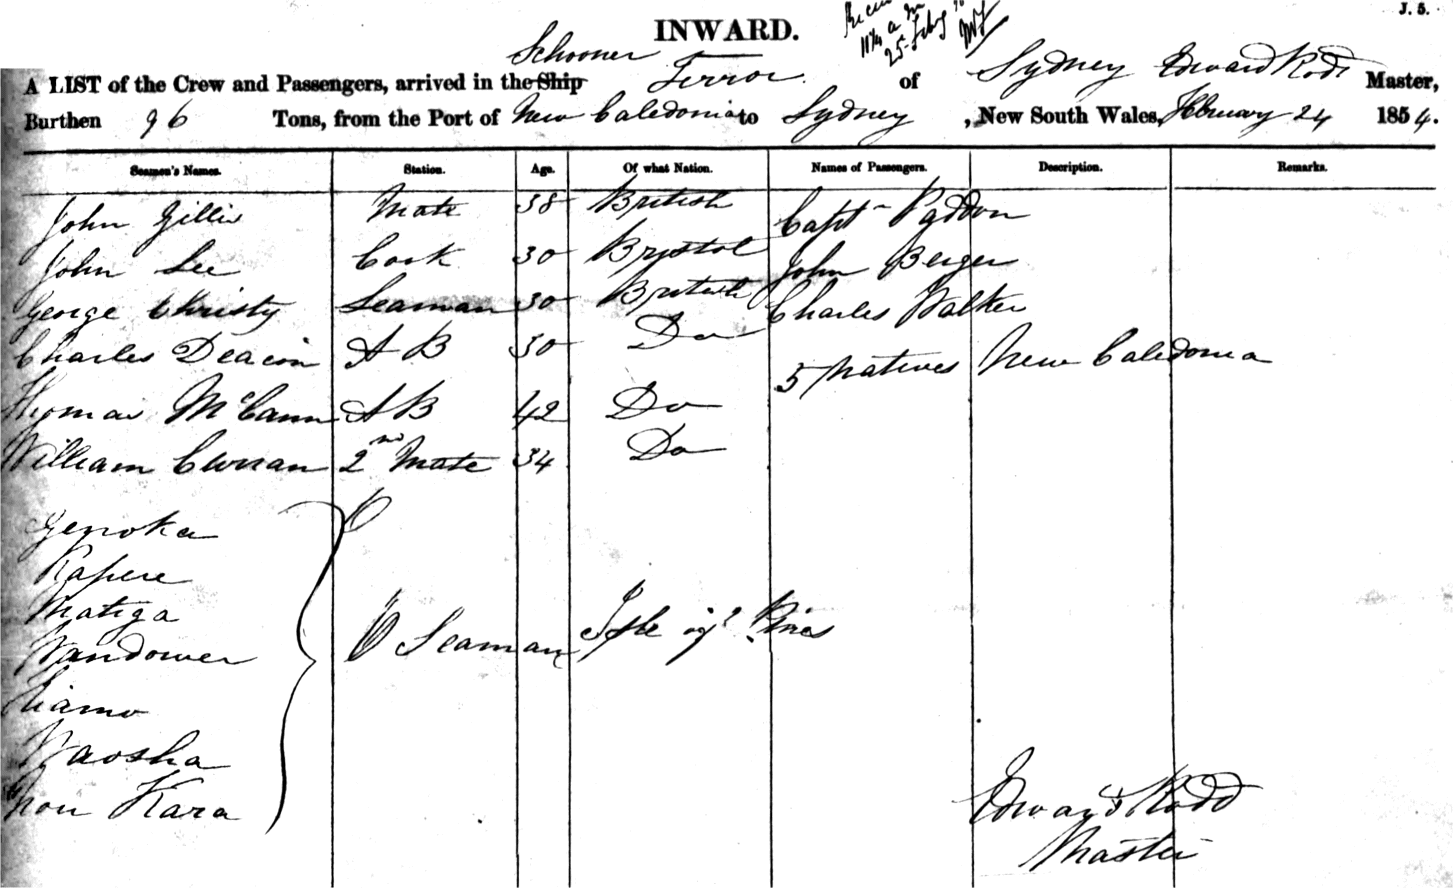 J. 5.
INWARD.
11¼ a m
25 Feby
Schooner
A LIST of the Crew and Passengers, arrived in the Ship Terror of Sydney Edward Rodd Master,
Burthen 96 Tons, from the Port of New Caledonia to Sydney, New South Wales, February 24 1854.
Seamen's Names. Station. Age. Of what Nation. Names of Passengers. Description. Remarks.
John Gillis Mate 38 British Capt Paddon
John Lee Cook 30 Brystol John Berger
George Christy Seaman 30 British Charles Walker
Charles Deacon A B 30 Do
5 Natives New Caledonia
Thomas McCann A B 42 Do
William Curran 2nd Mate 34 Do
Genoka
Kapere
Matiga
Wandower Seaman Isle of Pines
Siamo
Waosha
Kara
Edward Rodd
Master